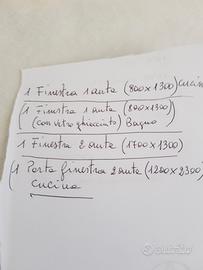 1 Finestra 1 anta (800x1300) Cucina
(1 Finestra 1 anta (800x1300)
(con vetro ghiacciato) Bagno)
1 Finestra 2 ante (1700x1300)
(1 Porta finestra 2 ante (1200x2300)
cucina
subito